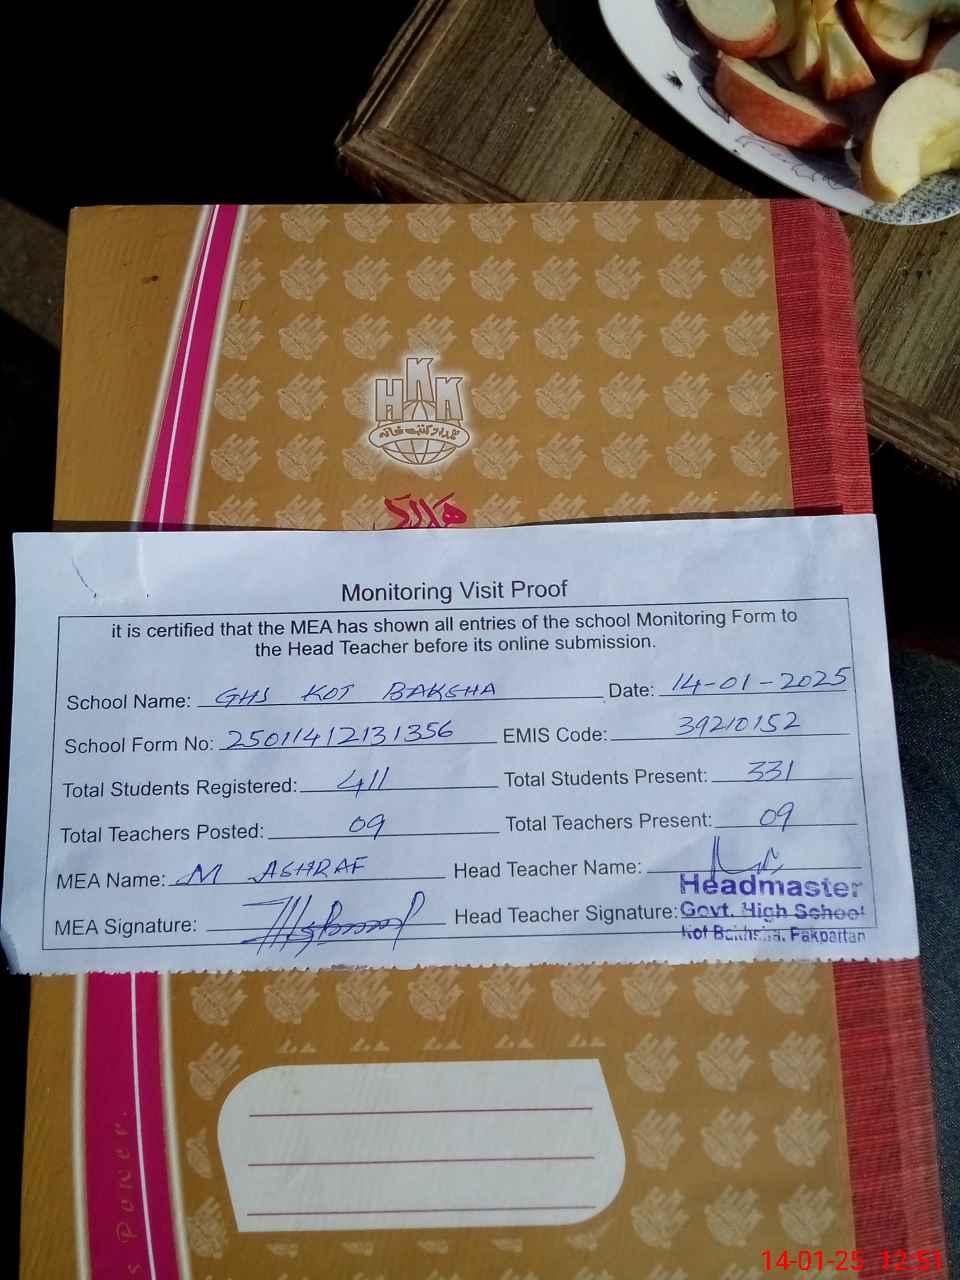 HKK
ھمدرد کتب خانہ
Monitoring Visit Proof
it is certified that the MEA has shown all entries of the school Monitoring Form to
the Head Teacher before its online submission.
School Name: GHS KOT BAKSHA Date: 14-01-2025
School Form No: 25011412131356 EMIS Code: 39210152
Total Students Registered: 411 Total Students Present: 331
Total Teachers Posted: 09 Total Teachers Present: 09
MEA Name: M ASHRAF Head Teacher Name:
MEA Signature: Head Teacher Signature:
Headmaster
Govt. High School
Kot Bakhsha, Pakpattan
Power
14-01-25 12:51